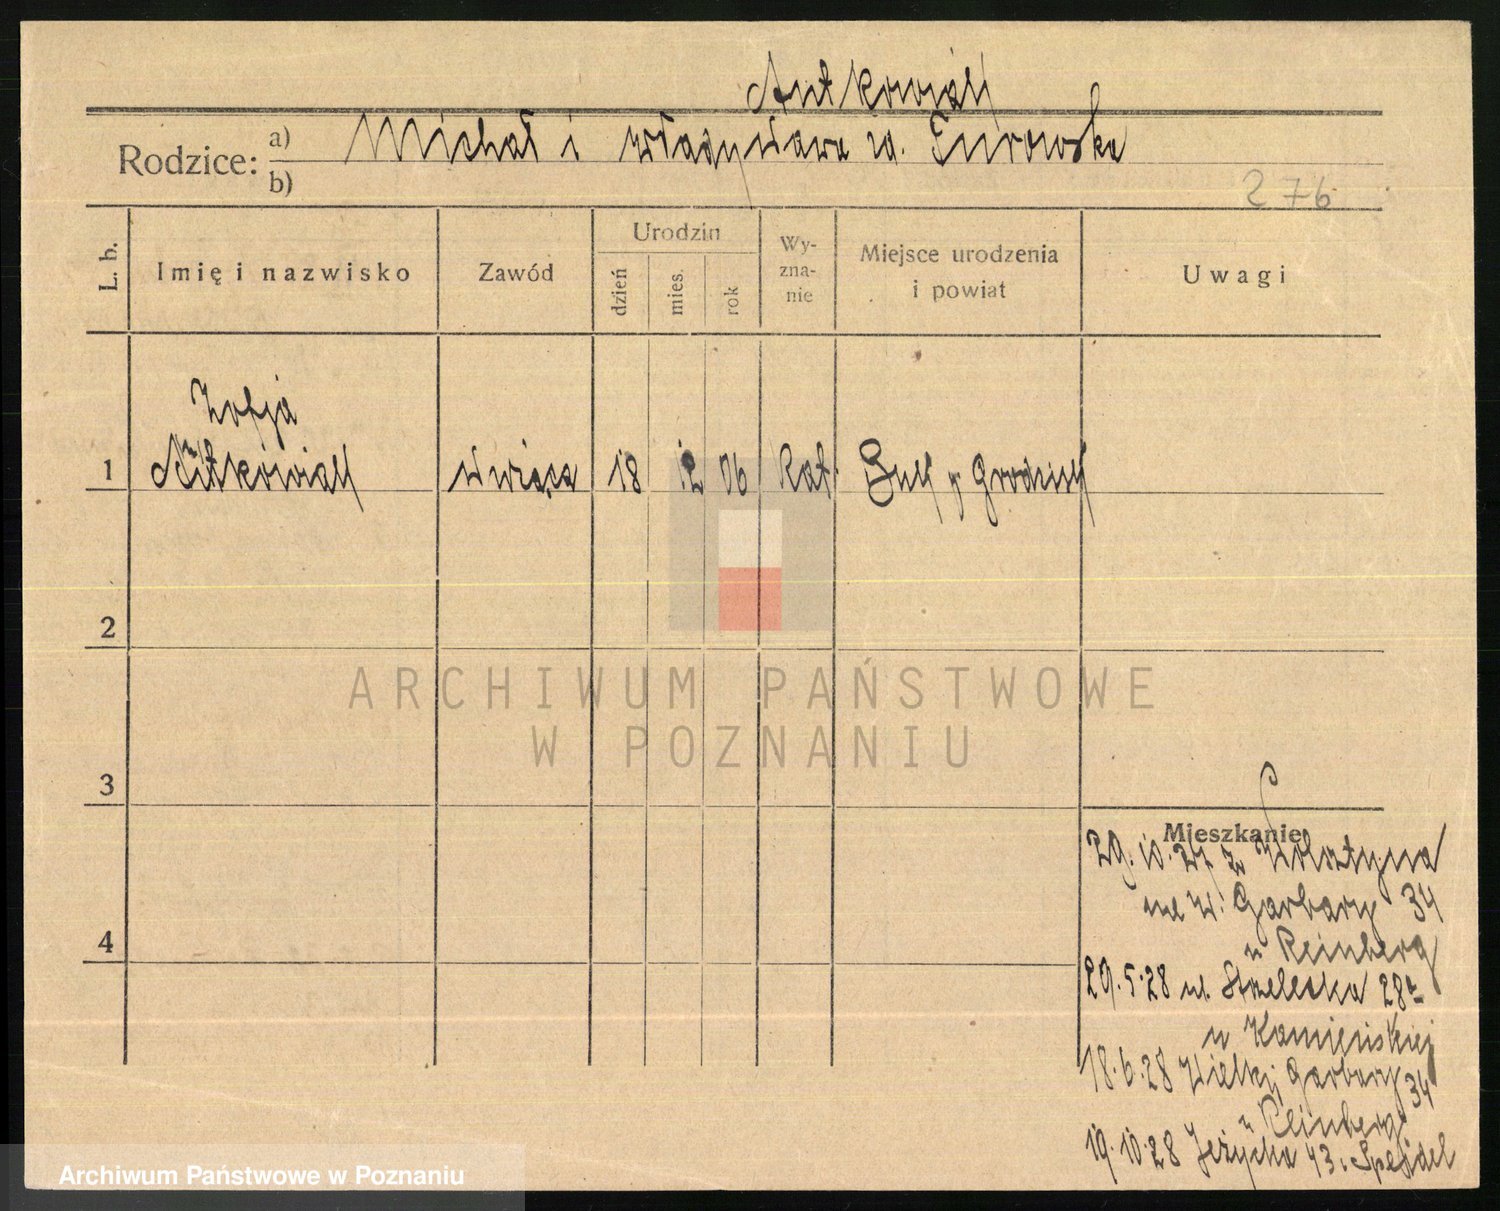 Antkowiak
Rodzice: a) Michał i Władysława zd. Turowska
b)
276
L. b.
Imię i nazwisko
Zawód
Urodzin
dzień
mies.
rok
Wy-
zna-
nie
Miejsce urodzenia
i powiat
Uwagi
Zofja
1 Antkowiak 18 12 06 Kat. Buk p Grodzisk
2
3
4
ARCHIWUM PAŃSTWOWE
W POZNANIU
Mieszkanie
29.10.27 z Wolsztyna
na W. Garbary 34
u Reinberg
29.5.28 ul. Strzelecka 28a
u Kamieńskiej
18.6.28 Wielkij Garbary 34
u Reinberg
19.10.28 Jeżycka 43. Spejdel
Archiwum Państwowe w Poznaniu